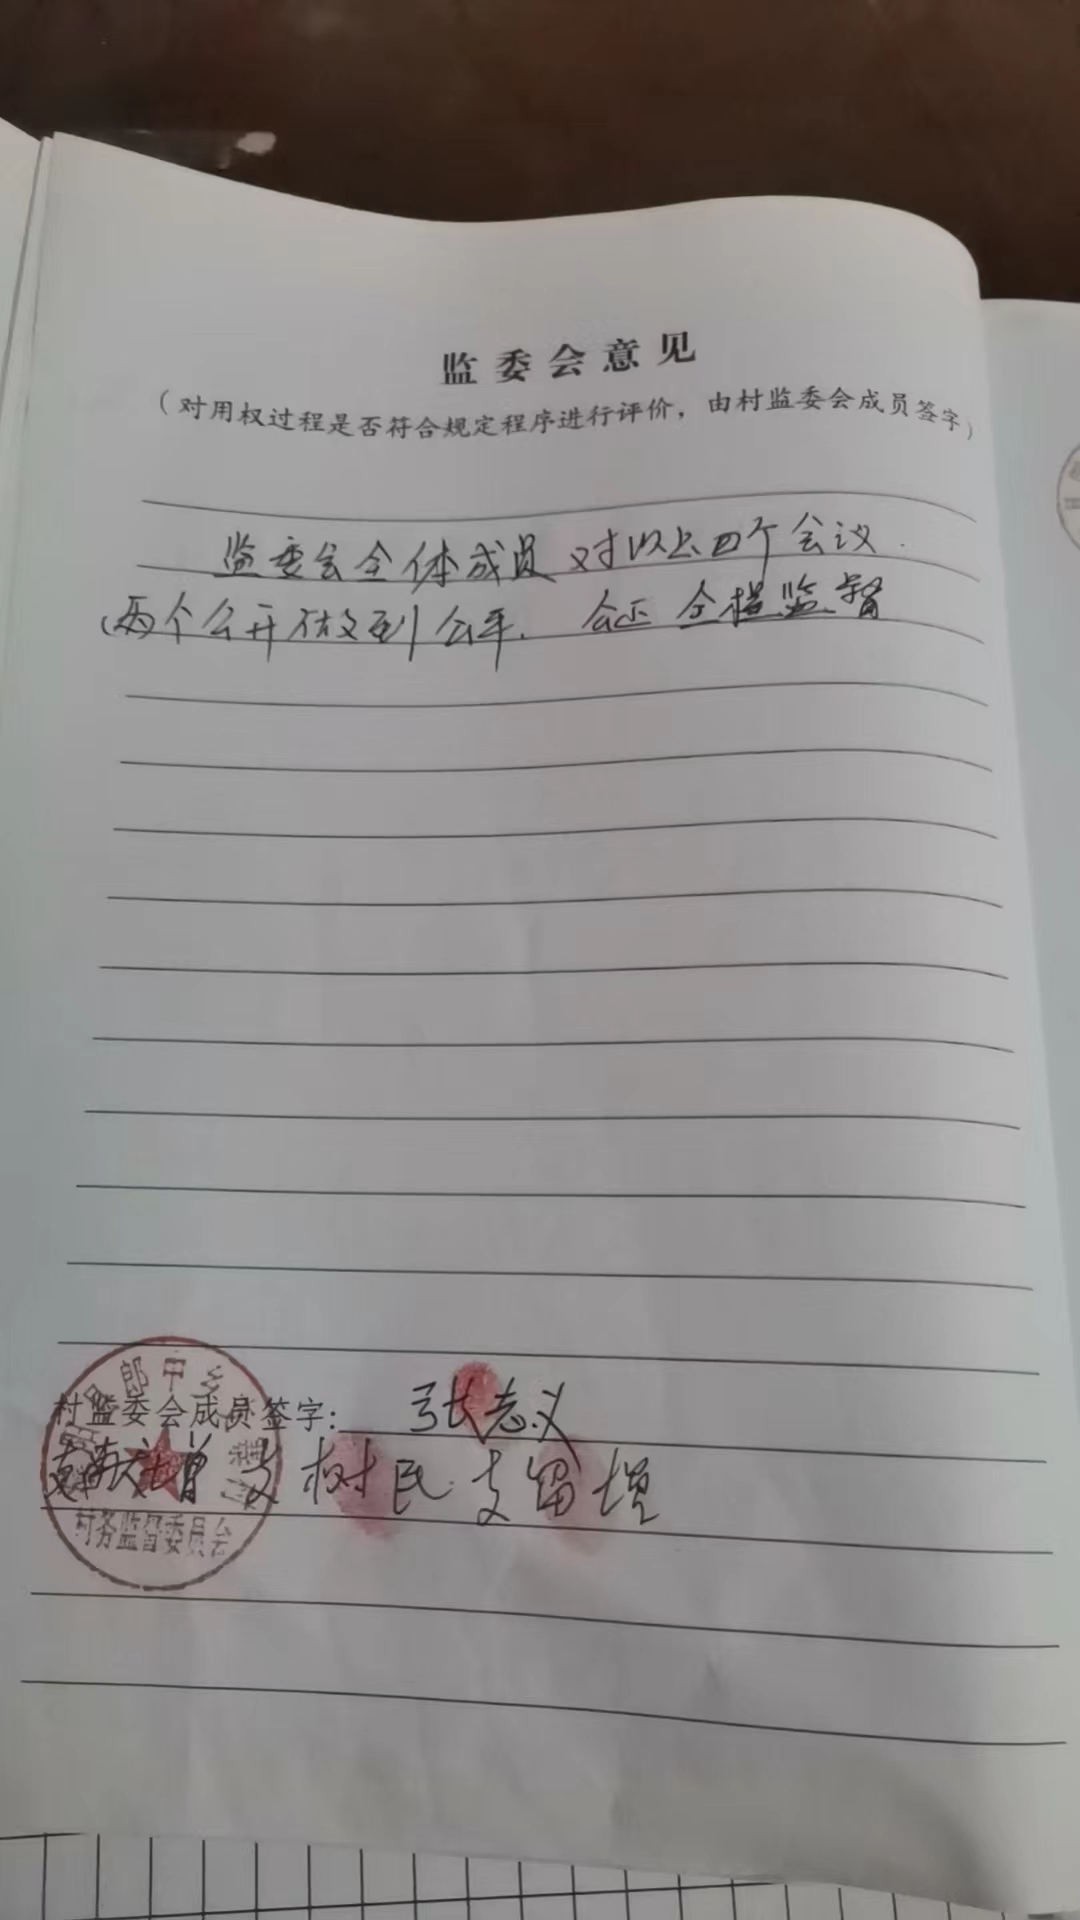 监委会意见
（对用权过程是否符合规定程序进行评价，由村监委会成员签字）
监委会全体成员对以上四个会议.
两个公开做到公平. 公正 全程监督
村监委会成员签字：张志义
支树民 支留增
郎甲乡
村务监督委员会